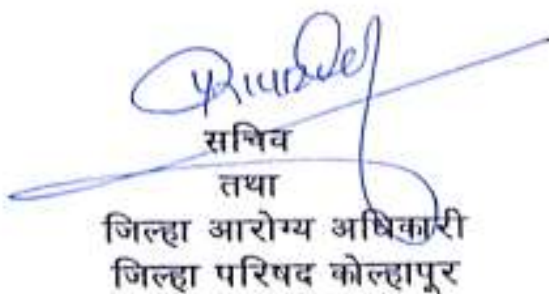 सचिव
तथा
जिल्हा आरोग्य अधिकारी
जिल्हा परिषद कोल्हापूर